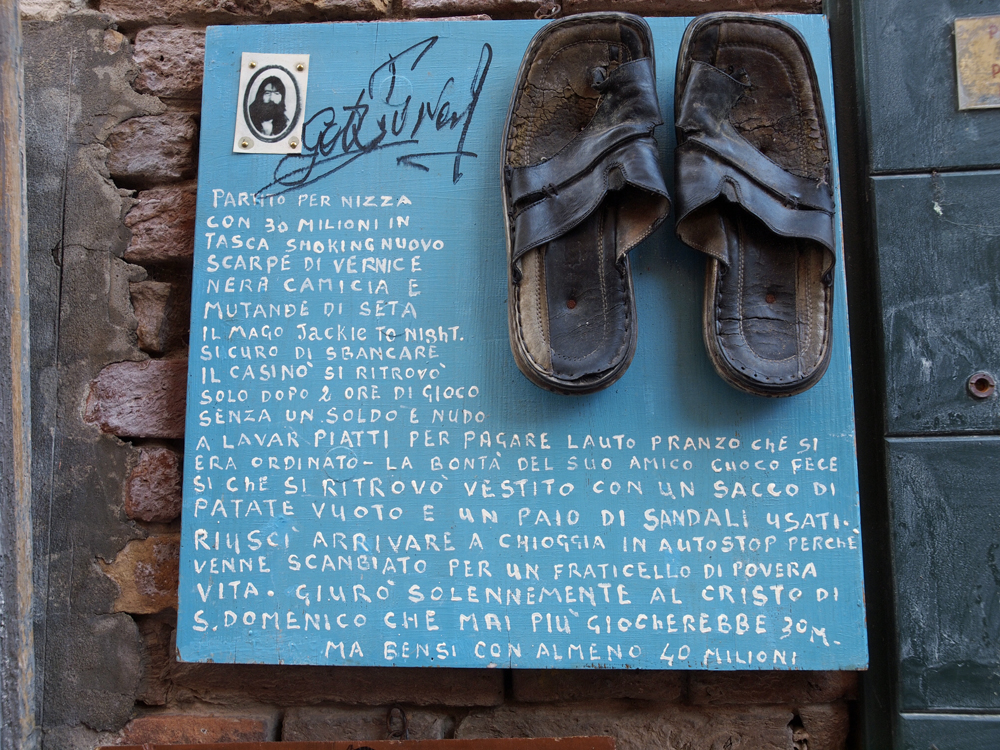 PARTITO PER NIZZA
CON 30 MILIONI IN
TASCA SMOKING NUOVO
SCARPE DI VERNICE
NERA CAMICIA E
MUTANDE DI SETA
IL MAGO JacKie To Night.
SICURO DI SBANCARE
IL CASINO' SI RITROVO'
SOLO DOPO 2 ORE DI GIOCO
SENZA UN SOLDO E NUDO
A LAVAR PIATTI PER PAGARE LAUTO PRANZO ChE SI
ERA ORDINATO - LA BONTÀ DEL SUO AMICO CHOCO FECE
SI ChE SI RITROVO' VESTITO CON UN SACCO DI
PATATE VUOTO E UN PAIO DI SANDALI USATI.
RIUSCI' ARRIVARE A CHIOGGIA IN AUTOSTOP PERCHÈ
VENNE SCANBIATO PER UN FRATICELLO DI POVERA
VITA. GIURO' SOLENNEMENTE AL CRISTO DI
S. DOMENICO CHE MAI PIU' GIOCHEREBBE 30 M.
MA BENSI CON ALMENO 40 MILIONI